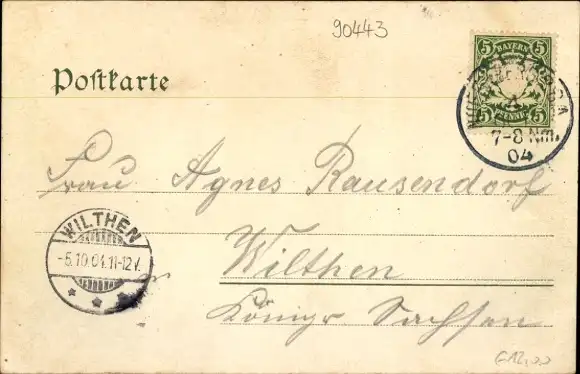 90443
5 BAYERN 5
5 PFENNIG 5
7-8 Nm.
04
Postkarte
Frau Agnes Rausendorf
WILTHEN
-5.10.04.11-12V.
Wilthen
Königr Sachsen